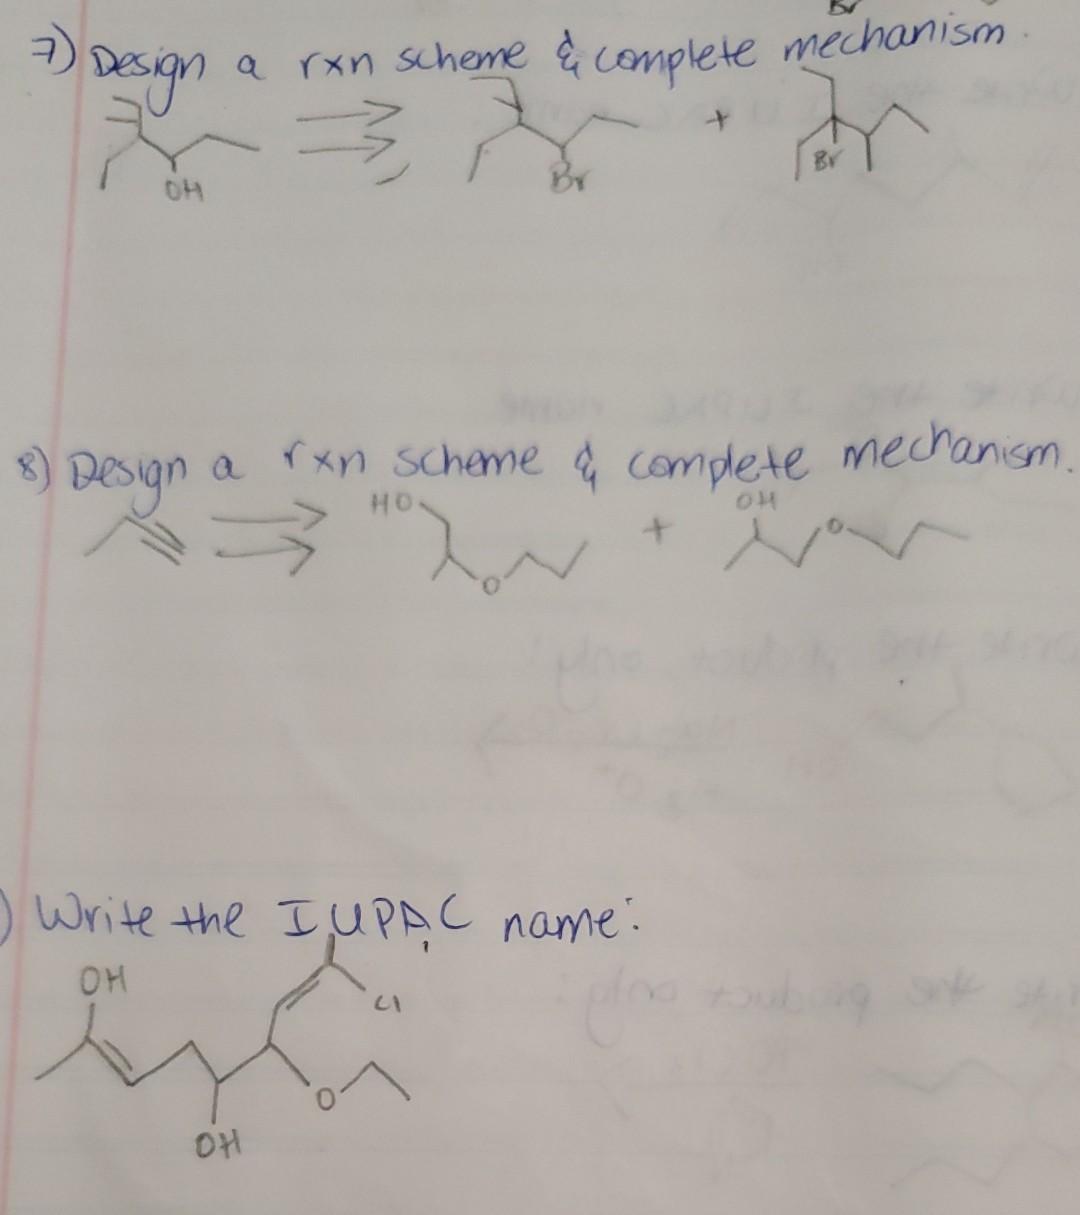 Br
7) Design a rxn scheme & complete mechanism.
+
OH
Br
Br
8) Design a rxn scheme & complete mechanism.
HO
OH
+
O
O
) Write the IUPAC name:
OH
Cl
O
OH